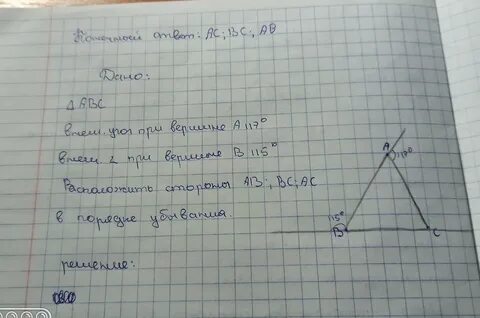 Конечный ответ: AC; BC; AB
Дано:
△ABC
внеш. угол при вершине A 117°
внеш. ∠ при вершине B 115°
Расположить стороны AB; BC; AC
в порядке убывания.
решение:
A
117°
115°
B
C